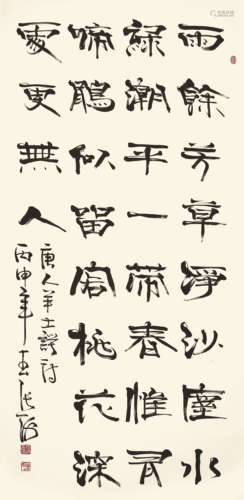 雨餘芳草淨沙塵水
綠潮平一帶春惟有
啼鵑似留客桃花深
處更無人
唐人羊士諤詩
丙申年王